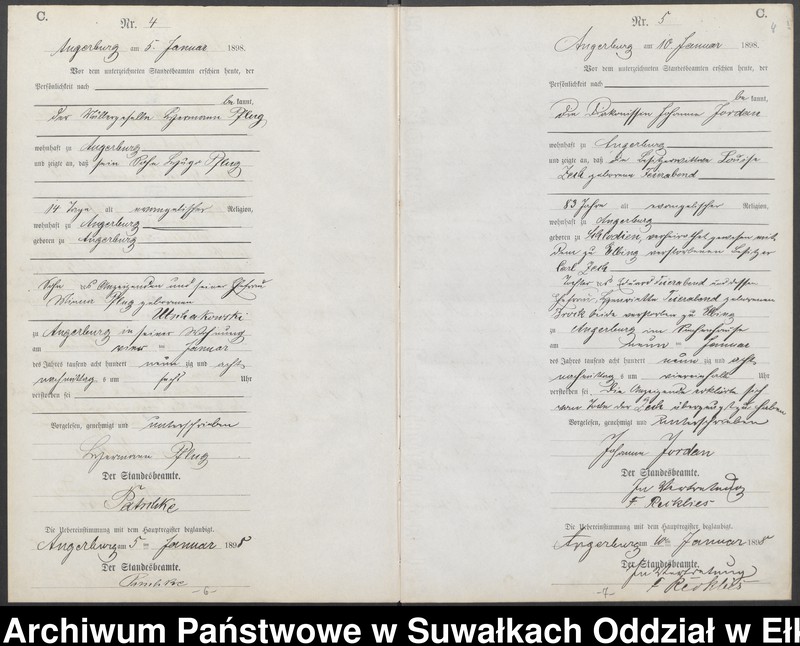 C.
Nr. 4
Angerburg am 5. Januar 1898.
Vor dem unterzeichneten Standesbeamten erschien heute, der
Persönlichkeit nach
be kannt,
der Müllergeselle Hermann Plug
wohnhaft zu Angerburg
und zeigte an, daß sein Sohn Hugo Plug
14 Tage alt evangelischer Religion,
wohnhaft zu Angerburg
geboren zu Angerburg
Sohn des Anzeigenden und seiner Ehefrau
Plug geborenen
zu Angerburg in seiner Wohnung
am vier ten Januar
des Jahres tausend acht hundert neun zig und acht
nachmittag s um sechs Uhr
verstorben sei
Vorgelesen, genehmigt und unterschrieben
Hermann Plug
Der Standesbeamte.
Die Uebereinstimmung mit dem Hauptregister beglaubigt.
Angerburg am 5 ten Januar 1898
Der Standesbeamte.
-6-
C.
Nr. 5
Angerburg am 10. Januar 1898.
Vor dem unterzeichneten Standesbeamten erschien heute, der
Persönlichkeit nach
be kannt,
die Diakonissin Johanna Jordan
wohnhaft zu Angerburg
und zeigte an, daß die Besitzerwittwe Louise
Zech geborene Feierabend
83 Jahre alt evangelischer Religion,
wohnhaft zu Angerburg
geboren zu verheirathet gewesen mit
dem zu Elbing verstorbenen Besitzer
Carl Zech
Tochter des Eduard Feierabend und dessen
Ehefrau Henriette Feierabend geborenen
beide verstorben zu Elbing
zu Angerburg im
am neun ten Januar
des Jahres tausend acht hundert neun zig und acht
nachmittag s um viereinhalb Uhr
verstorben sei. Die Anzeigende erklärte sich
vom Tode der Zech überzeugt zu haben
Vorgelesen, genehmigt und unterschrieben
Johanna Jordan
Der Standesbeamte.
In Vertretung
F. Recklies
Die Uebereinstimmung mit dem Hauptregister beglaubigt.
Angerburg am 10ten Januar 1898
Der Standesbeamte.
In Vertretung
F Recklies
-7-
Archiwum Państwowe w Suwałkach Oddział w Ełk